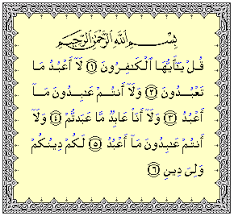 بِسْمِ اللَّهِ الرَّحْمَٰنِ الرَّحِيمِ
قُلْ يَـٰٓأَيُّهَا ٱلْكَـٰفِرُونَ ١ لَآ أَعْبُدُ مَا
تَعْبُدُونَ ٢ وَلَآ أَنتُمْ عَـٰبِدُونَ مَآ
أَعْبُدُ ٣ وَلَآ أَنَا۠ عَابِدٌ مَّا عَبَدتُّمْ ٤ وَلَآ
أَنتُمْ عَـٰبِدُونَ مَآ أَعْبُدُ ٥ لَكُمْ دِينُكُمْ
وَلِىَ دِينِ ٦